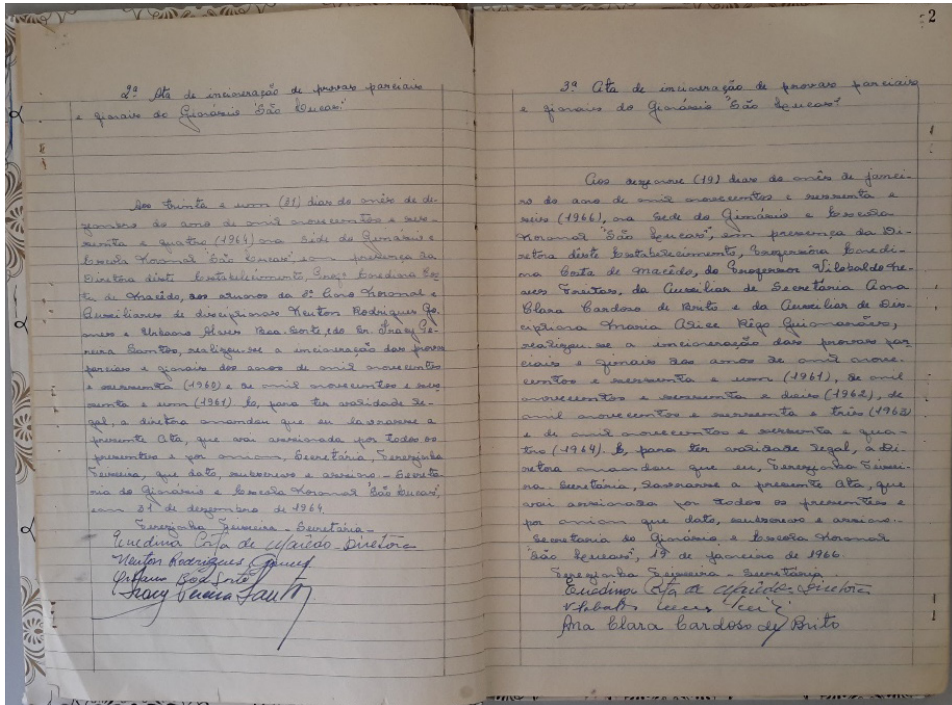 2ª Ata de incineração de provas parciais
e finais do Ginásio "São Lucas"
Aos trinta e um (31) dias do mês de de-
zembro do ano de mil novecentos e ses-
senta e quatro (1964) na Sede do Ginásio e
Escola Normal "São Lucas", com presença da
Diretora dêste Estabelecimento, Enedina Cos-
ta de Macêdo, dos alunos da 3ª Normal e
Auxiliares de disciplinas Newton Rodrigues Go-
mes e Urbano Alves Boa-Sorte, e do Sr. Iracy Pe-
reira Santos, realizou-se a incineração das provas
parciais e finais dos anos de mil novecentos
e sessenta (1960) e de mil novecentos e ses-
senta e um (1961). E, para ter validade le-
gal, a diretora mandou que eu lavrasse a
presente Ata, que vai assinada por todos os
presentes e por mim, Secretária, Terezinha
Teixeira, que dato, subscrevo e assino. - Secreta-
ria do Ginásio e Escola Normal "São Lucas",
em 31 de dezembro de 1964.
Terezinha Teixeira - Secretária -
Enedina Costa de Macêdo - Diretora
Newton Rodrigues Gomes
Urbano Boa Sorte
Iracy Pereira Santos
2
3ª Ata de incineração de provas parciais
e finais do Ginásio "São Lucas".
Aos dezenove (19) dias do mês de janei-
ro do ano de mil novecentos e sessenta e
seis (1966), na Sede do Ginásio e Escola
Normal "São Lucas", em presença da Di-
retora dêste Estabelecimento, Professôra Enedi-
na Costa de Macêdo, do Professor Vilobaldo Ne-
ves Freitas, da Auxiliar de Secretária Ana
Clara Cardoso de Brito e da Auxiliar de Dis-
ciplina Maria Alice Rêgo Guimarães,
realizou-se a incineração das provas par-
ciais e finais dos anos de mil nove-
centos e sessenta e um (1961), de mil
novecentos e sessenta e dois (1962), de
mil novecentos e sessenta e três (1963)
e de mil novecentos e sessenta e qua-
tro (1964). E, para ter validade legal, a Di-
retora mandou que eu, Terezinha Teixei-
ra - Secretária, lavrasse a presente Ata, que
vai assinada por todos os presentes e
por mim que dato, subscrevo e assino. -
Secretaria do Ginásio e Escola Normal
"São Lucas", 19 de janeiro de 1966.
Terezinha Teixeira - Secretária.
Enedina Costa de Macêdo - Diretora
Ana Clara Cardoso de Brito